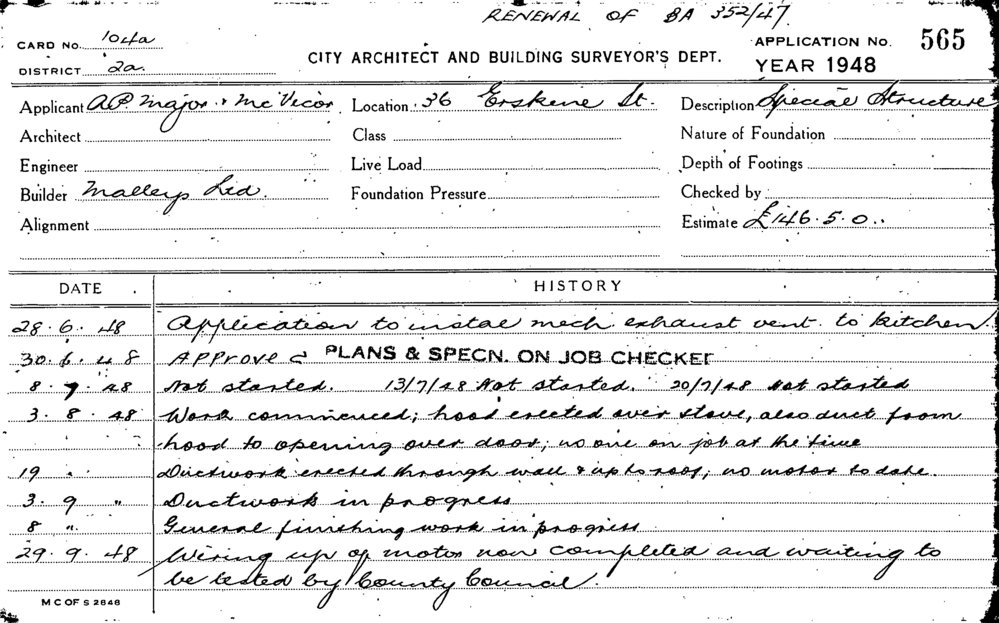 RENEWAL OF BA 352/47.
CARD NO. 104a
DISTRICT 2a.
CITY ARCHITECT AND BUILDING SURVEYOR'S DEPT.
APPLICATION No. 565
YEAR 1948
Applicant A.P. Major & McVicar Location 36 Erskine St. Description Special Structure
Architect Class Nature of Foundation
Engineer Live Load Depth of Footings
Builder Malleys Ltd. Foundation Pressure Checked by
Alignment Estimate £146.5.0.
DATE HISTORY
28.6.48 Application to instal mech. exhaust vent. to kitchen.
30.6.48 APPROVED PLANS & SPECN. ON JOB CHECKED
8.7.48 Not started. 13/7/48 Not started. 20/7/48 Not started
3.8.48 Work commenced; hood erected over stove, also duct from
hood to opening over door; no one on job at the time
19 " Ductwork erected through wall & up to roof; no motor to date.
3.9 " Ductwork in progress
8 " General finishing work in progress
29.9.48 Wiring up of motor now completed and waiting to
be tested by County Council.
M C OF S 2848